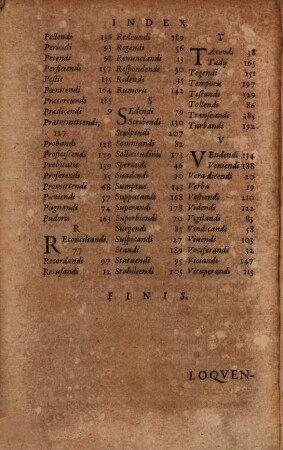 INDEX
Pellendi 156
Periculi 93
Petendi 98
Perficiendi 157
Pestis 155
Pœnitendi 164
Prætereundi 185
Prædicendi 9
Prætermittendi,
127
Probandi 128
Proficiscendi 179
Prohibicus 139
Proferendi 15
Promittendi 68
Puniendi 57
Pugnandi 74
Pudoris 165
R
REconciliandi,
77
Recordandi 97
Recusandi 12
Redeundi 189
Regendi 56
Renunciandi 13
Respondendi 50
Ridendi 55
Rumoris 142
S
SEdendi 79
Scribendi 130
Sculpendi 207
Somniandi 82
Sollicitudinis 173
Sperandi 46
Suadendi 90
Sumptus 143
Supputandi 168
Superandi 178
Superbiendi 70
Surgendi 85
Suspicandi 27
Standi 189
Statuendi 95
Stabiliendi 205
T
TAcendi 58
Tædij 165
Tegendi 151
Temporis 197
Testandi 29
Tollendi 86
Transeundi 185
Turbandi 192
V
VEndendi 134
Veniendi 188
Vera dicendi 20
Verba 19
Vestiendi 110
Videndi 122
Vigilandi 83
Vindicandi 58
Viuendi 103
Vociferandi 32
Vitiandi 147
Vituperandi 113
FINIS.
LOQVEN-